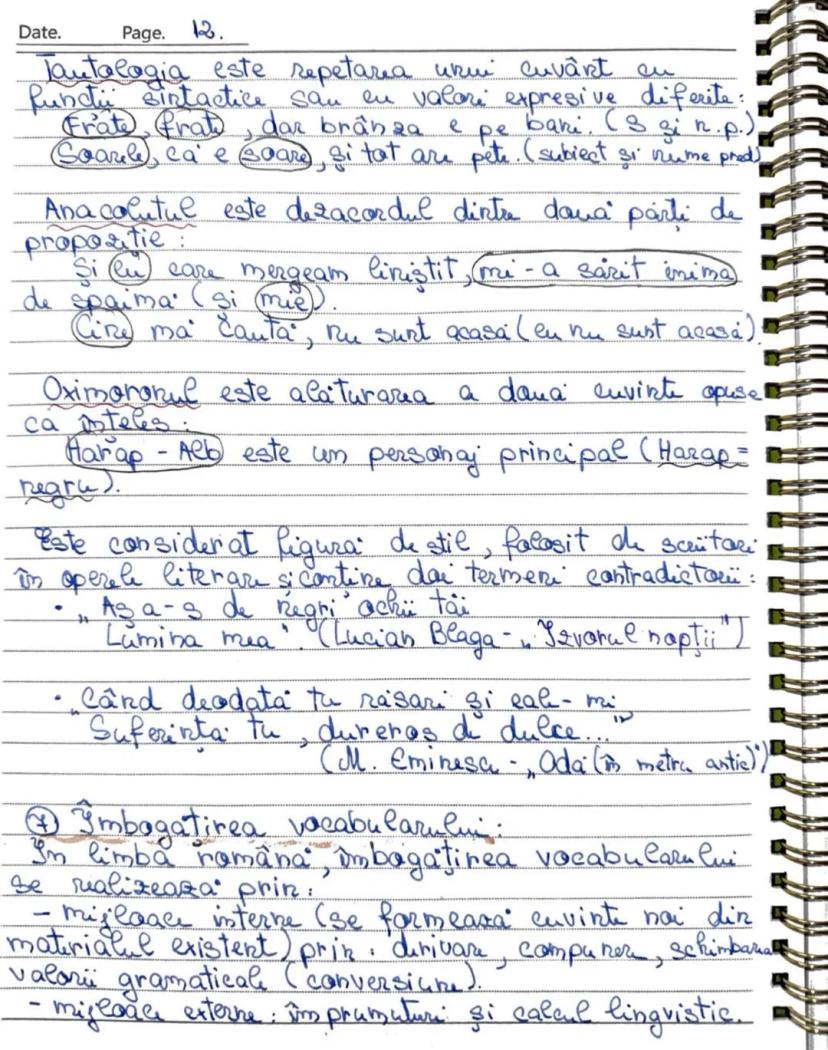 Date. Page. 12.
Tautologia este repetarea unui cuvânt cu
funcții sintactice sau cu valori expresive diferite:
Frate, frate, dar brânza e pe bani. (S și n.p.)
Soarele, că e soare, și tot are pete. (subiect și nume pred)
Anacolutul este dezacordul dintre două părți de
propoziție:
Și eu care mergeam liniștit, mi-a sărit inima
de spaimă (și mie).
Cine mă caută, nu sunt acasă (eu nu sunt acasă).
Oximoronul este alăturarea a două cuvinte opuse
ca înteles:
Harap-Alb este un personaj principal (Harap=
negru).
Este considerat figură de stil, folosit de scriitori
în operele literare și conține doi termeni contradictorii:
• „Așa-s de negri ochii tăi
Lumina mea". (Lucian Blaga - „Izvorul nopții")
• „Când deodată tu răsări și eale-mi
Suferință tu, dureros de dulce..."
(M. Eminescu - „Odă (în metru antic)")
7 Îmbogățirea vocabularului:
În limba română, îmbogățirea vocabularului
se realizează prin:
- mijloace interne (se formează cuvinte noi din
materialul existent) prin: derivare, compunere, schimbarea
valorii gramaticale (conversiune).
- mijloace externe: împrumuturi și calcul lingvistic.